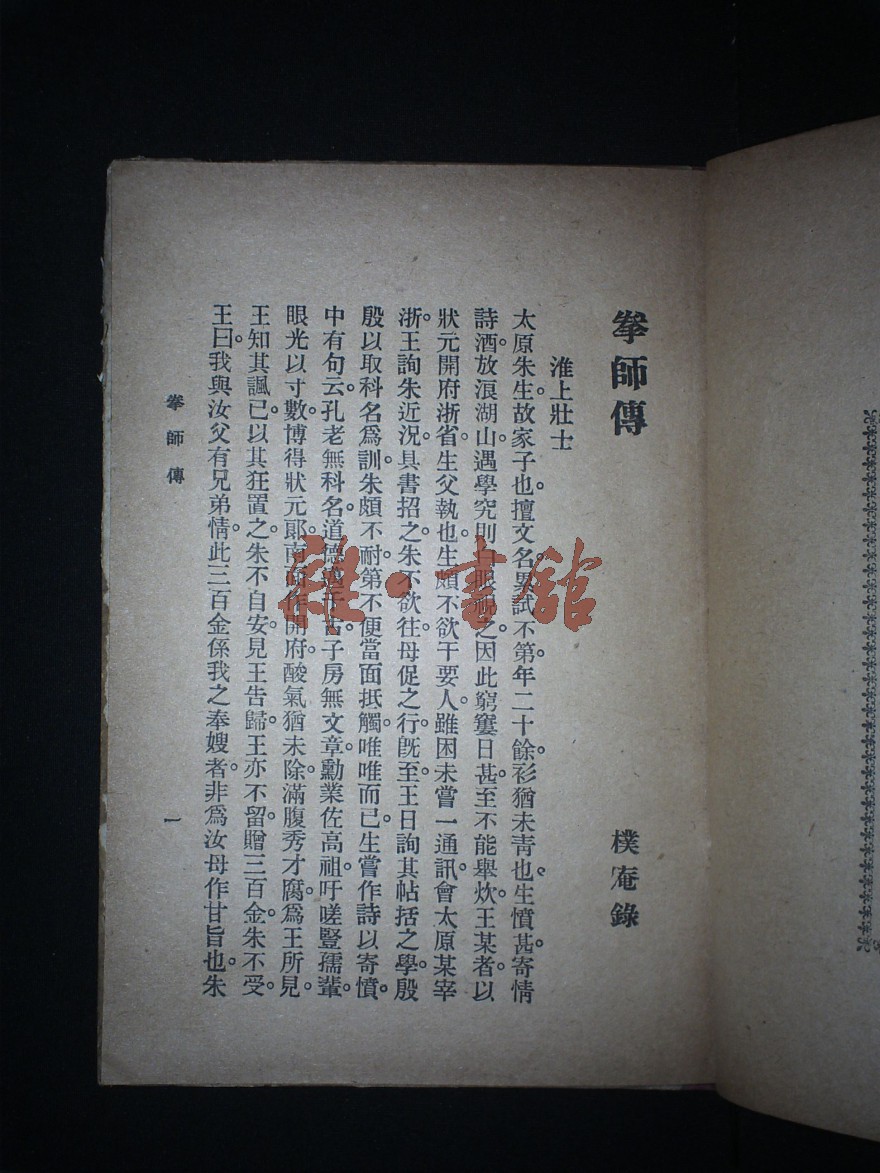 拳師傳
樸庵錄
淮上壯士
太原朱生。故家子也。擅文名。累試不第。年二十餘。衫猶未青也。生憤甚。寄情
詩酒。放浪湖山。遇學究則白眼視之。因此窮窶日甚。至不能舉炊。王某者。以
狀元開府浙省。生父執也。生頗不欲干要人。雖困未嘗一通訊。會太原某宰
浙。王詢朱近況。具書招之。朱不欲往。母促之行。旣至。王日詢其帖括之學。殷
殷以取科名爲訓。朱頗不耐。第不便當面抵觸。唯唯而已。生嘗作詩以寄憤。
中有句云。孔老無科名。道德 古。子房無文章。勳業佐高祖。吁嗟豎孺輩。
眼光以寸數。博得狀元郞。南 作開府。酸氣猶未除。滿腹秀才腐。爲王所見。
王知其諷己。以其狂置之。朱不自安。見王告歸。王亦不留。贈三百金。朱不受。
王曰。我與汝父有兄弟情。此三百金係我之奉嫂者。非爲汝母作甘旨也。朱
拳師傳
一
雜·書館